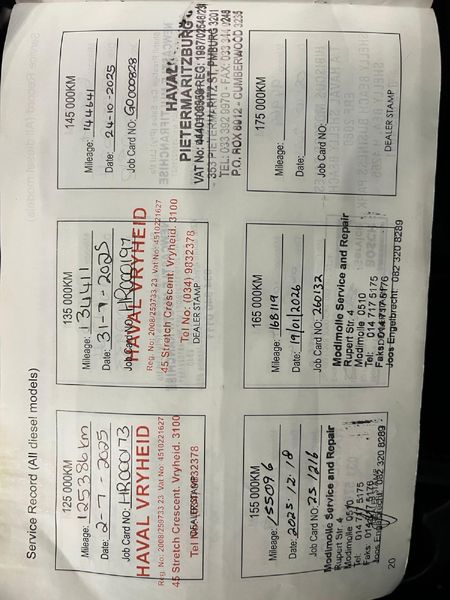 Service Record (All diesel models)
125 000KM
Mileage: 125386km
Date: 2-7-2025
Job Card NO: HR000173
HAVAL VRYHEID
Reg. No: 2008/259733.23 Vat No: 4510221627
45 Stretch Crescent. Vryheid. 3100
Tel No: (034) 9832378
DEALER STAMP
135 000KM
Mileage: 134411
Date: 31-7-2025
Job Card NO: HR000197
HAVAL VRYHEID
Reg. No: 2008/259733.23 Vat No: 4510221627
45 Stretch Crescent. Vryheid. 3100
Tel No: (034) 9832378
DEALER STAMP
145 000KM
Mileage: 144641
Date: 24-10-2025
Job Card NO: G0000828
HAVAL
PIETERMARITZBURG
353 PIETERMARITZ ST, PMBURG 3201
P.O. BOX 8912 - CUMBERWOOD 3235
155 000KM
Mileage: 155096
Date: 2025.12.18
Job Card NO: 251216
Modimolle Service and Repair
Rupert Str. 4
Modimolle 0510
Tel: 014 717 5175
Faks: 014 717 5176
Joos Engelbrecht 082 320 8289
165 000KM
Mileage: 168119
Date: 19/01/2026
Job Card NO: 260132
Modimolle Service and Repair
Rupert Str. 4
Modimolle 0510
Tel: 014 717 5175
Faks: 014 717 5176
Joos Engelbrecht 082 320 8289
175 000KM
Mileage:
Date:
Job Card NO:
DEALER STAMP
20